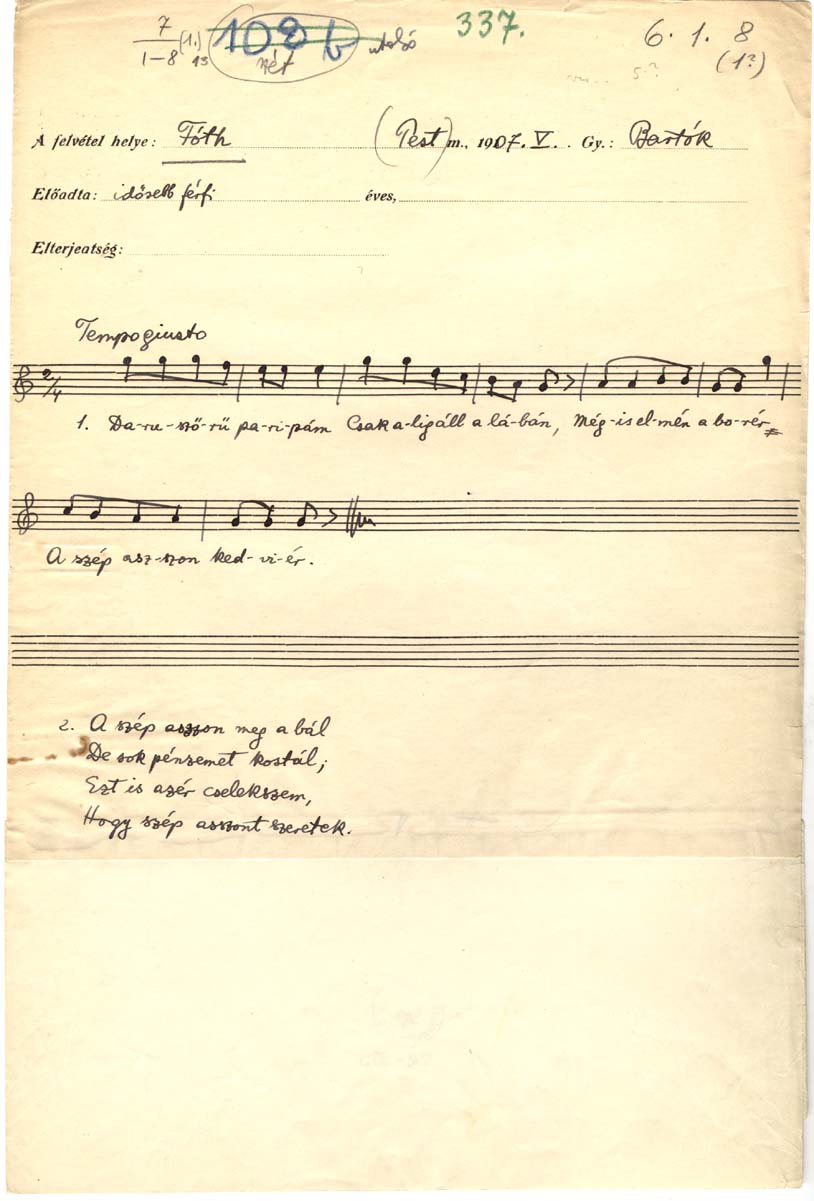 7 (1.) 108 b utolsó 337. 6. 1. 8
1-8 13 (1?)
A felvétel helye: Fóth (Pest) m., 1907. V. Gy.: Bartók
Előadta: idősebb férfi éves,
Elterjeatség:
Tempo giusto
2/4
1. Da-ru-szö-rű pa-ri-pám Csak a-lig áll a lá-bán, Még-is el-mén a bo-rér
A szép asz-szon ked-vi-ér.
2. A szép asszon meg a bál
De sok pénzemet kostál;
Ezt is azér cselekszem,
Hogy szép asszont szeretek.